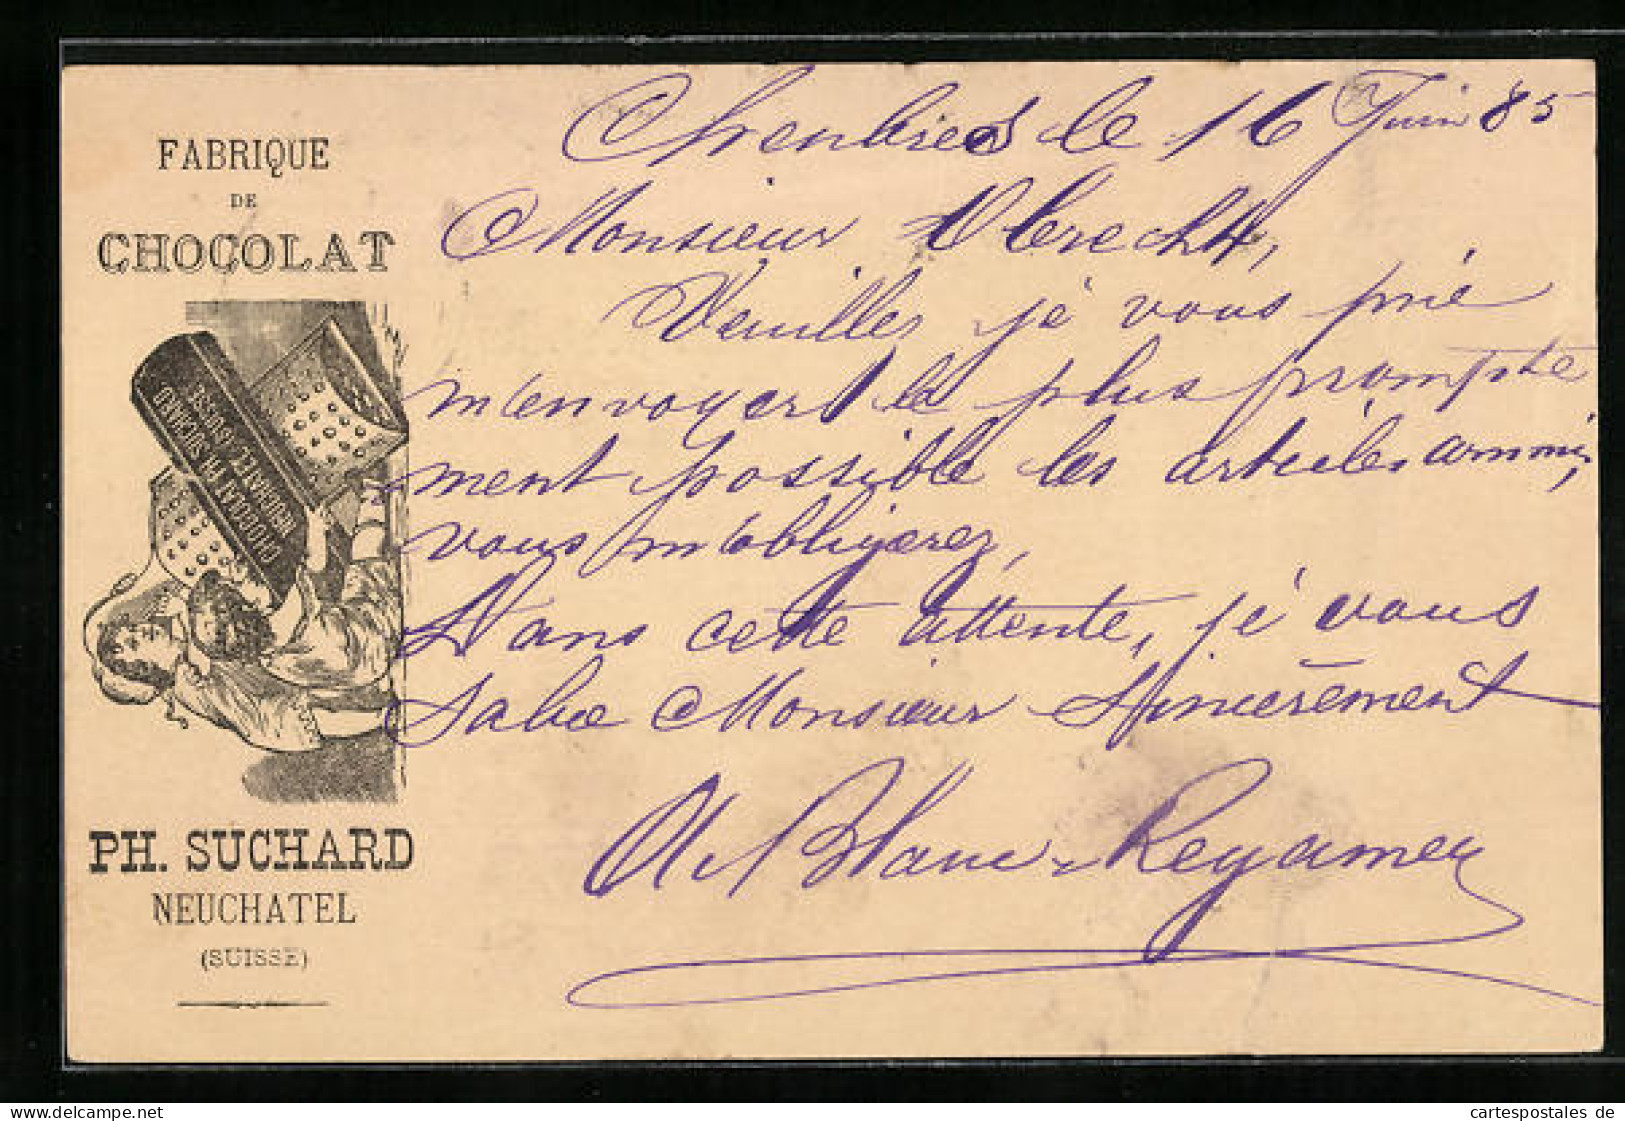 FABRIQUE
DE
CHOCOLAT
CHOCOLAT PH. SUCHARD
NEUCHATEL (SUISSE)
PH. SUCHARD
NEUCHATEL
(SUISSE)
le 16 Juin 85
Monsieur Obrecht,
Veuillez je vous prie
m'envoyer le plus prompte
ment possible les articles
vous m'obligerez,
Dans cette attente, je vous
Salue Monsieur Sincèrement
Blanc-Reyamey
cartespostales de